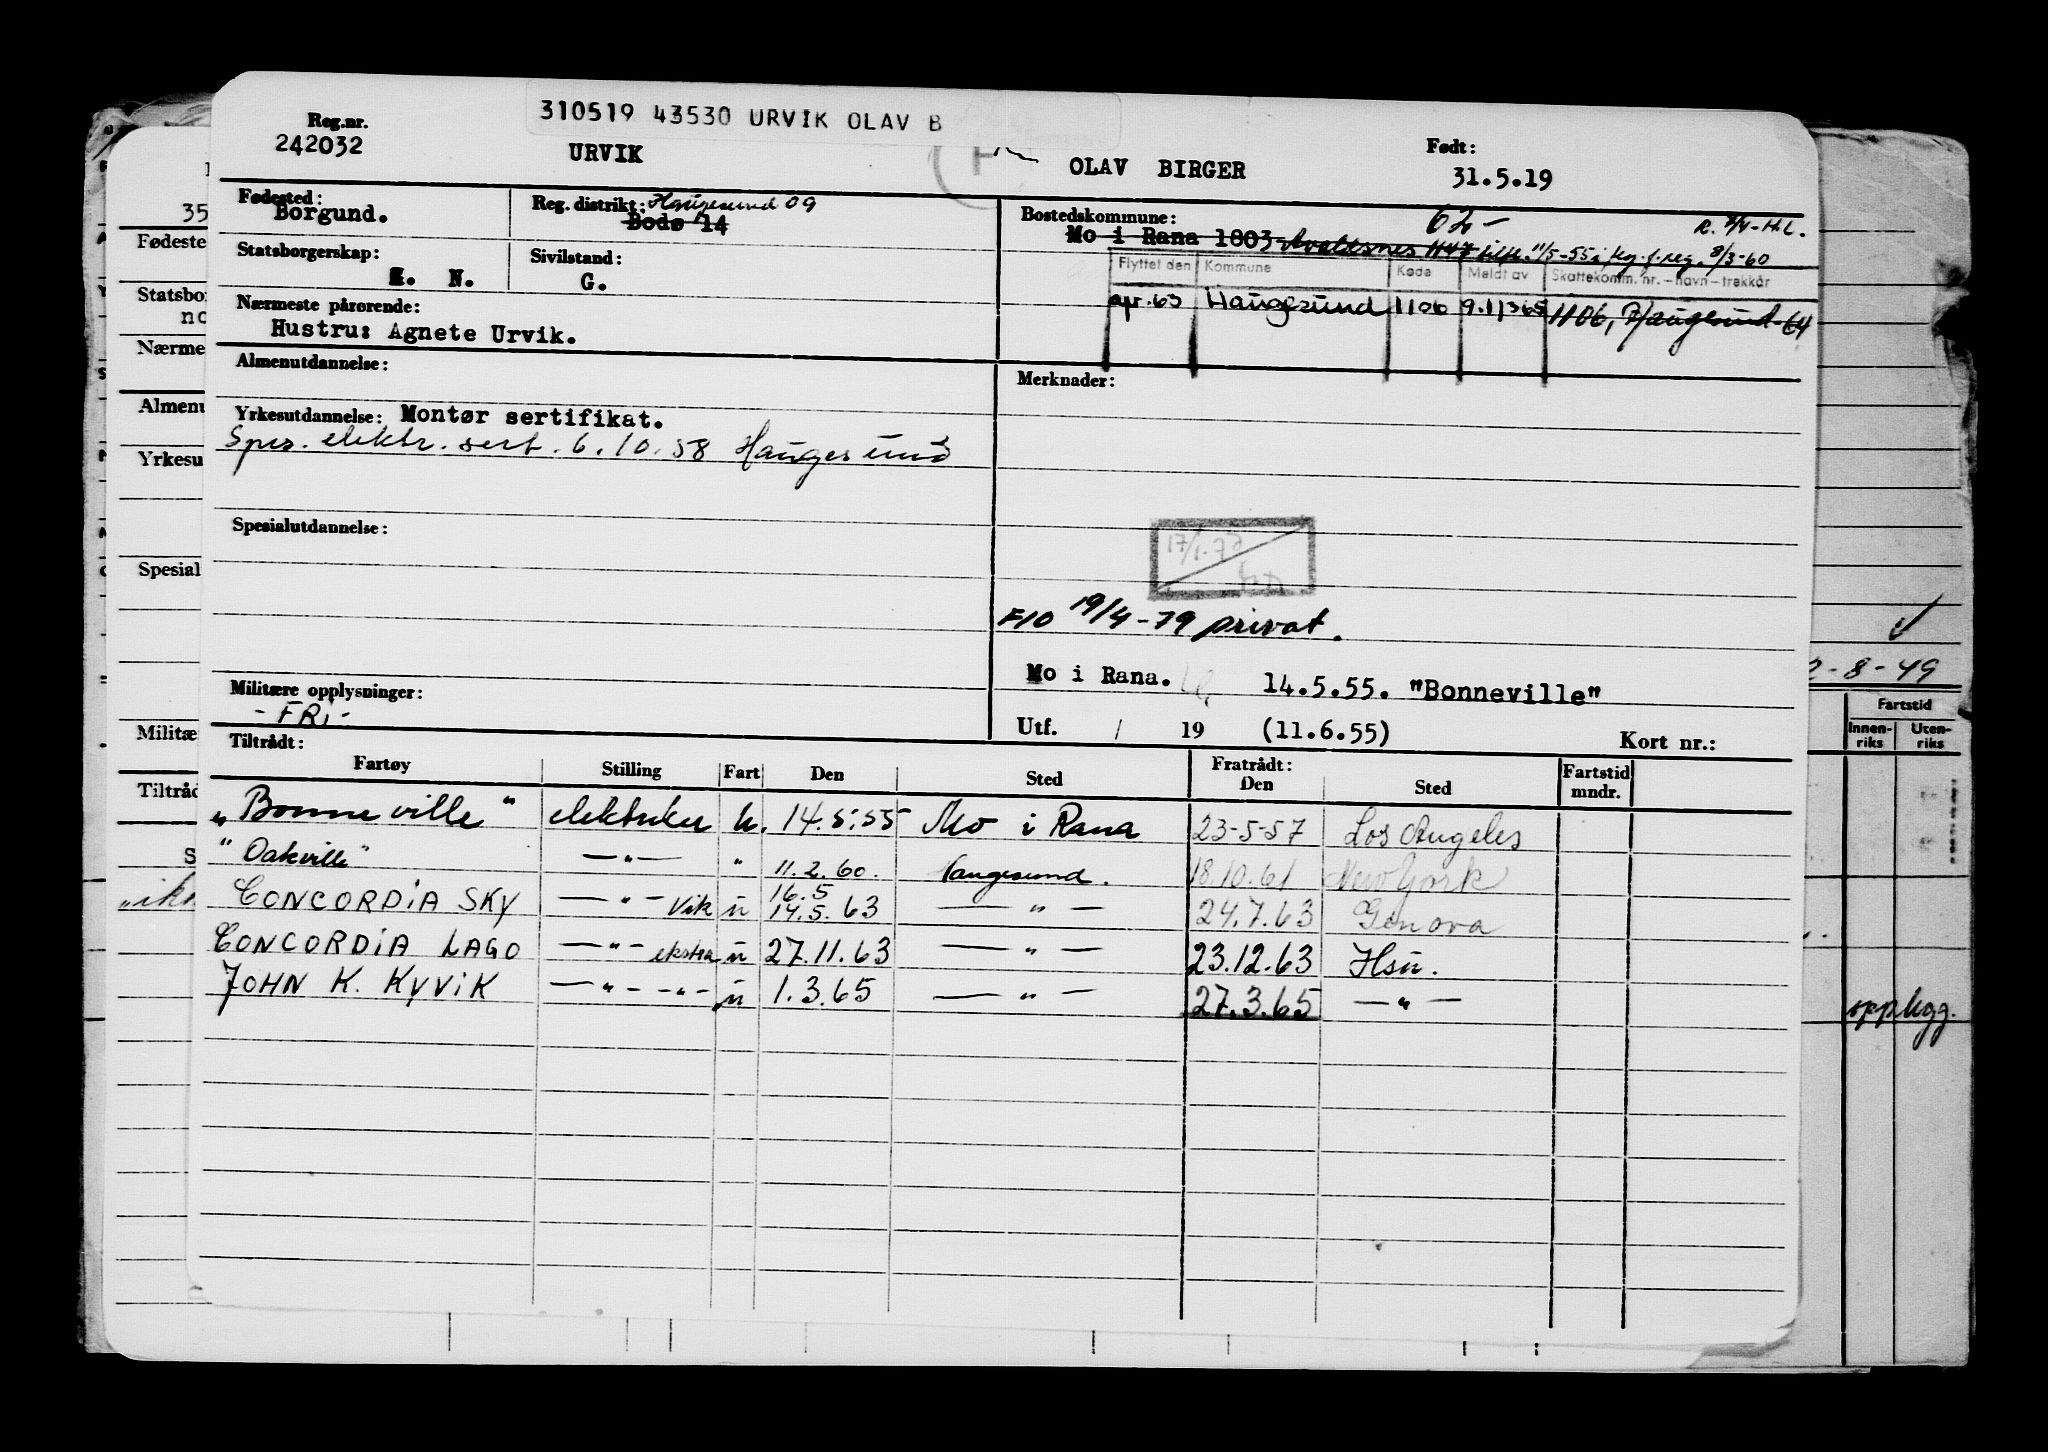 310519 43530 URVIK OLAV B
Reg.nr.
242032
URVIK
OLAV BIRGER
Født:
31.5.19
Fødested:
Borgund.
Reg. distrikt: Haugesund 09
Bodø 14
Bostedskommune:
62-
Mo i Rana 1803 Avaldsnes 1147
Statsborgerskap:
N.
Sivilstand:
G.
Flyttet den Kommune Kode Meldt av Skattekomm. nr. - navn - trekkår
apr. 63 Haugesund 1106 1106, Haugesund 64
Nærmeste pårørende:
Hustru: Agnete Urvik.
Almenutdannelse:
Merknader:
Yrkesutdannelse: Montør sertifikat.
Spes. elektr. sert. 6.10.58 Haugesund
Spesialutdannelse:
F10 19/4-79 privat.
Mo i Rana. 14.5.55. "Bonneville"
Militære opplysninger:
- FRi -
Utf. / 19 (11.6.55) Kort nr.:
Tiltrådt:
Fratrådt:
Fartøy Stilling Fart Den Sted Den Sted Fartstid mndr.
"Bonneville" elektriker u. 14.5.55 Mo i Rana 23-5-57 Los Angeles
"Oakville" —"— " 11.2.60. Haugesund. 18.10.61 New York
16.5
CONCORDiA SKY —"— Vik u 14.5.63 —"— 24.7.63 Genova
CONCORDiA LAGO —"— ekstra u 27.11.63 —"— 23.12.63 Hsu.
JOHN K. KYViK —"— —"— u 1.3.65 —"— 27.3.65 —"—
35
Fødeste
Statsbo
no
Nærme
Almenu
Yrkesu
Spesial
Militæ
Tiltråd
2-8-49
Fartstid
Innen-riks Uten-riks
opplegg.